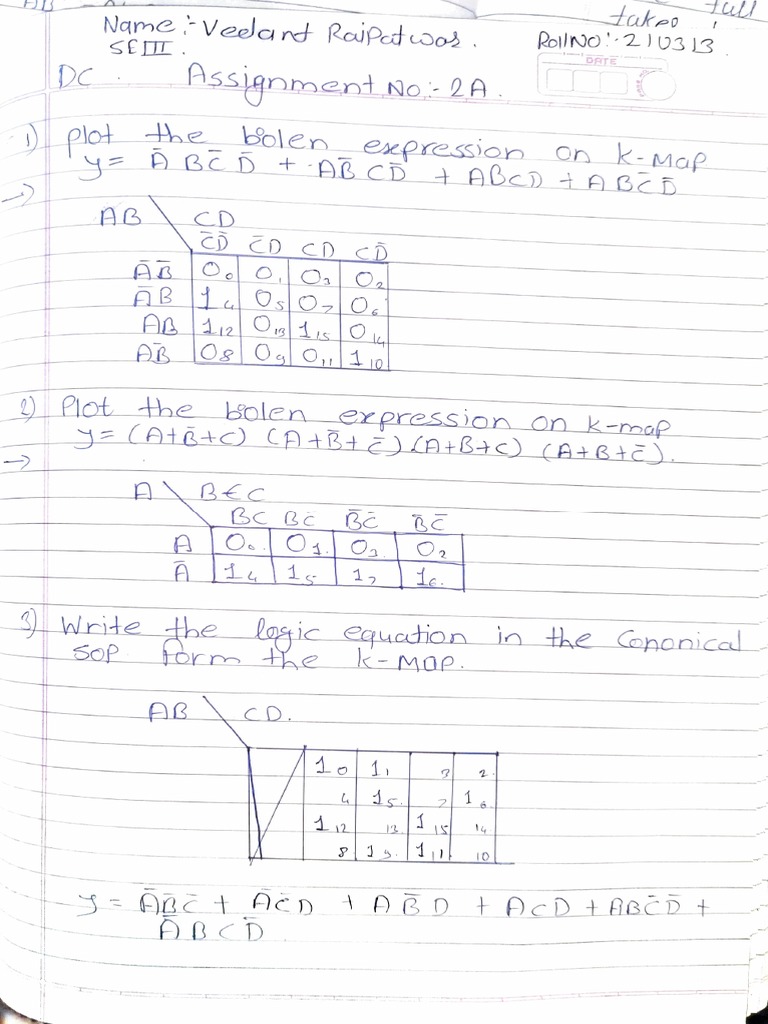 takeo full
Name:- Veedant Raipatwar. RollNO:-210313
SEIII.
DATE
DC. Assignment No:- 2A.
1) Plot the bolen expression on K-Map
y = A̅ B C̅ D̅ + A B̅ C D̅ + A B C D + A B C̅ D̅
→
AB \ CD
C̅D̅ C̅D CD CD̅
A̅B̅ 0₀ 0₁ 0₃ 0₂
A̅B 1₄ 0₅ 0₇ 0₆
AB 1₁₂ 0₁₃ 1₁₅ 0₁₄
AB̅ 0₈ 0₉ 0₁₁ 1₁₀
2) Plot the bolen expression on k-map
y = (A+B̅+C) (A+B̅+C̅) (A+B+C) (A+B+C̅).
→
A \ B€C
BC BC̅ B̅C̅ B̅C̅
A 0₀ 0₁ 0₃ 0₂
A̅ 1₄ 1₅ 1₇ 1₆
3) Write the logic equation in the Cononical
SOP form the k-MAP.
AB \ CD.
1₀ 1₁ ₃ ₂
₄ 1₅ ₇ 1₆
1₁₂ ₁₃ 1₁₅ ₁₄
₈ 1₉ 1₁₁ ₁₀
y = A̅B̅C̅ + A̅C̅D + AB̅D + ACD + ABC̅D̅ +
A̅BCD̅